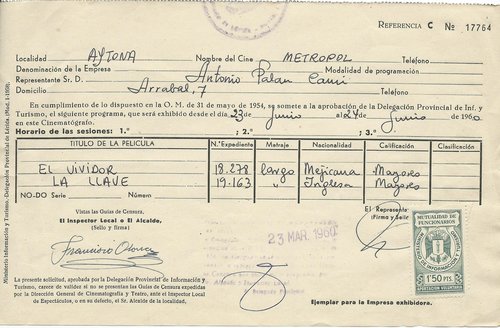 REFERENCIA C Nº 17764
Localidad AYTONA Nombre del Cine METROPOL Teléfono
Denominación de la Empresa Modalidad de programación
Representante Sr. D. Antonio Palau
Domicilio Arrabal, 7 Teléfono
En cumplimiento de lo dispuesto en la O. M. de 31 de mayo de 1954, se somete a la aprobación de la Delegación Provincial de Inf. y
Turismo, el siguiente programa, que será exhibido desde el día 23 de Junio al 24 de Junio de 1960
en este Cinematógrafo.
Horario de las sesiones: 1.ª ; 2.ª ; 3.ª
TITULO DE LA PELICULA N.º Expediente Metraje Nacionalidad Calificación Clasificación
EL VIVIDOR 18.278 largo Mejicana Mayores
LA LLAVE 19.163 " Inglesa Mayores
NO-DO Serie Número
Vistas las Guías de Censura.
El Inspector Local o El Alcalde,
(Sello y firma)
El Representante
(Firma y Sello
23 MAR. 1960
MUTUALIDAD DE
FUNCIONARIOS
1'50 PTS.
APORTACION VOLUNTARIA
La presente solicitud, aprobada por la Delegación Provincial de Información y
Turismo, carece de validez si no se presentan las Guías de Censura expedidas
por la Dirección General de Cinematografía y Teatro, ante el Inspector Local
de Espectáculos, o en su defecto, el Sr. Alcalde de la localidad.
Ejemplar para la Empresa exhibidora.
Ministerio Información y Turismo. Delegación Provincial de Lérida. (Mod. 1-1959)